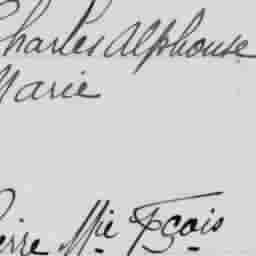 Charles Alphonse
Marie
Pierre Mie Fçois